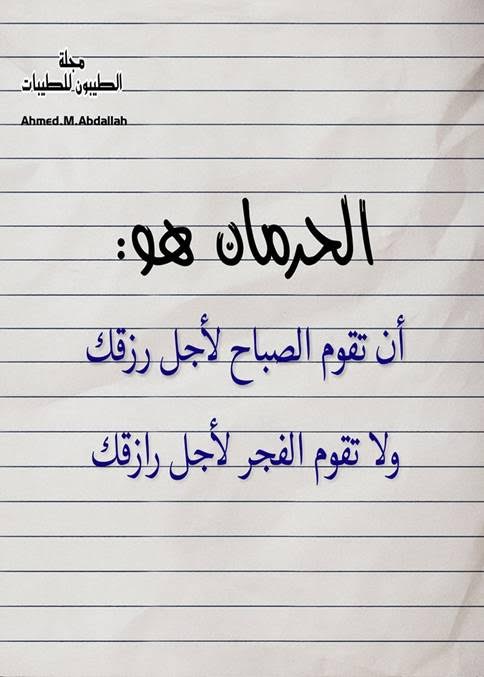 مجلة
الطيبون للطيبات
Ahmed.M.Abdallah
الحرمان هو:
أن تقوم الصباح لأجل رزقك
ولا تقوم الفجر لأجل رازقك